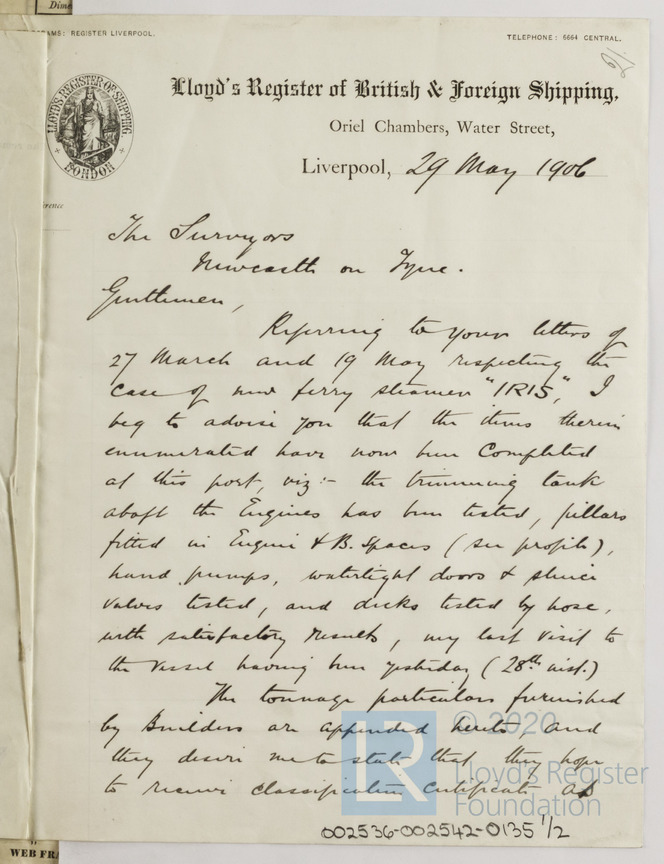 Dime
AMS: REGISTER LIVERPOOL.
TELEPHONE: 6664 CENTRAL.
LLOYD'S REGISTER OF SHIPPING
LONDON
Lloyd's Register of British & Foreign Shipping,
Oriel Chambers, Water Street,
Liverpool, 29 May 1906
The Surveyors
Newcastle on Tyne.
Gentlemen,
Referring to your letters of
27 March and 19 May respecting the
case of new ferry steamer "IRIS", I
beg to advise you that the items therein
enumerated have now been completed
at this port, viz:- the trimming tank
abaft the Engines has been tested, pillars
fitted in Engine & B. spaces (see profile),
hand pumps, watertight doors & sluice
valves tested, and decks tested by hose,
with satisfactory results, my last visit to
the vessel having been yesterday (28th inst.)
The tonnage particulars furnished
by Builders are appended hereto and
they desire me to state that they hope
to receive classification certificate as
© 2020
LR
Lloyd's Register
Foundation
002536-002542-0135 1/2
WEB FRA